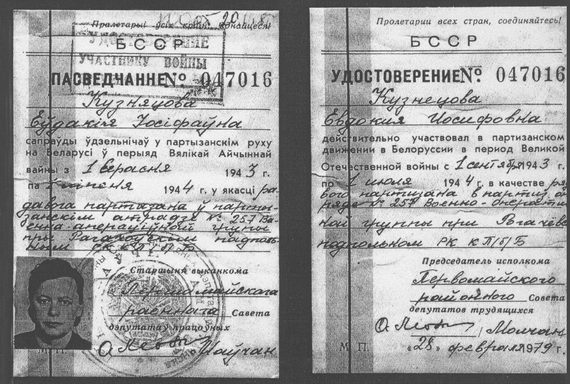 Пралетарыі ўсіх краін, яднайцеся!
БССР
УДОСТОВЕРЕНИЕ
УЧАСТНИКУ ВОЙНЫ
ПАСВЕДЧАННЕ № 047016
Кузняцова
Еўдакія Іосіфаўна
сапраўды ўдзельнічаў у партызанскім руху
на Беларусі ў перыяд Вялікай Айчыннай
вайны з 1 верасня 1943 г.
па 1 ліпеня 1944 г. у якасці ра-
давога партызана ў парты-
занскім атрадзе № 257 Ва-
енна-аператыўнай групы
пры Рагачоўскім падполь-
ным РК КП(б)Б
Старшыня выканкома
Першамайскага
раённага Савета
дэпутатаў працоўных
М. П.
Пролетарии всех стран, соединяйтесь!
БССР
УДОСТОВЕРЕНИЕ № 047016
Кузнецова
Евдокия Иосифовна
действительно участвовал в партизанском
движении в Белоруссии в период Великой
Отечественной войны с 1 сентября 1943 г.
по 1 июля 1944 г. в качестве ря-
вого партизана в партиз. от-
ряде № 257 Военно-оператив-
ной группы при Рогачёвском
подпольном РК КП/б/Б
Председатель исполкома
Первомайского
районного Совета
депутатов трудящихся
Молчан
М. П. "28" февраля 1979 г.